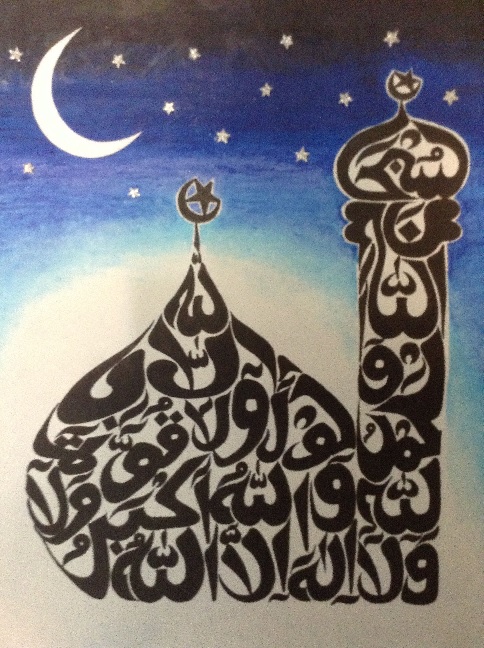 سبحان
الله
و
الحمد
لله
ولا اله الا الله
والله أكبر ولا
حول ولا قوة
الا بالله